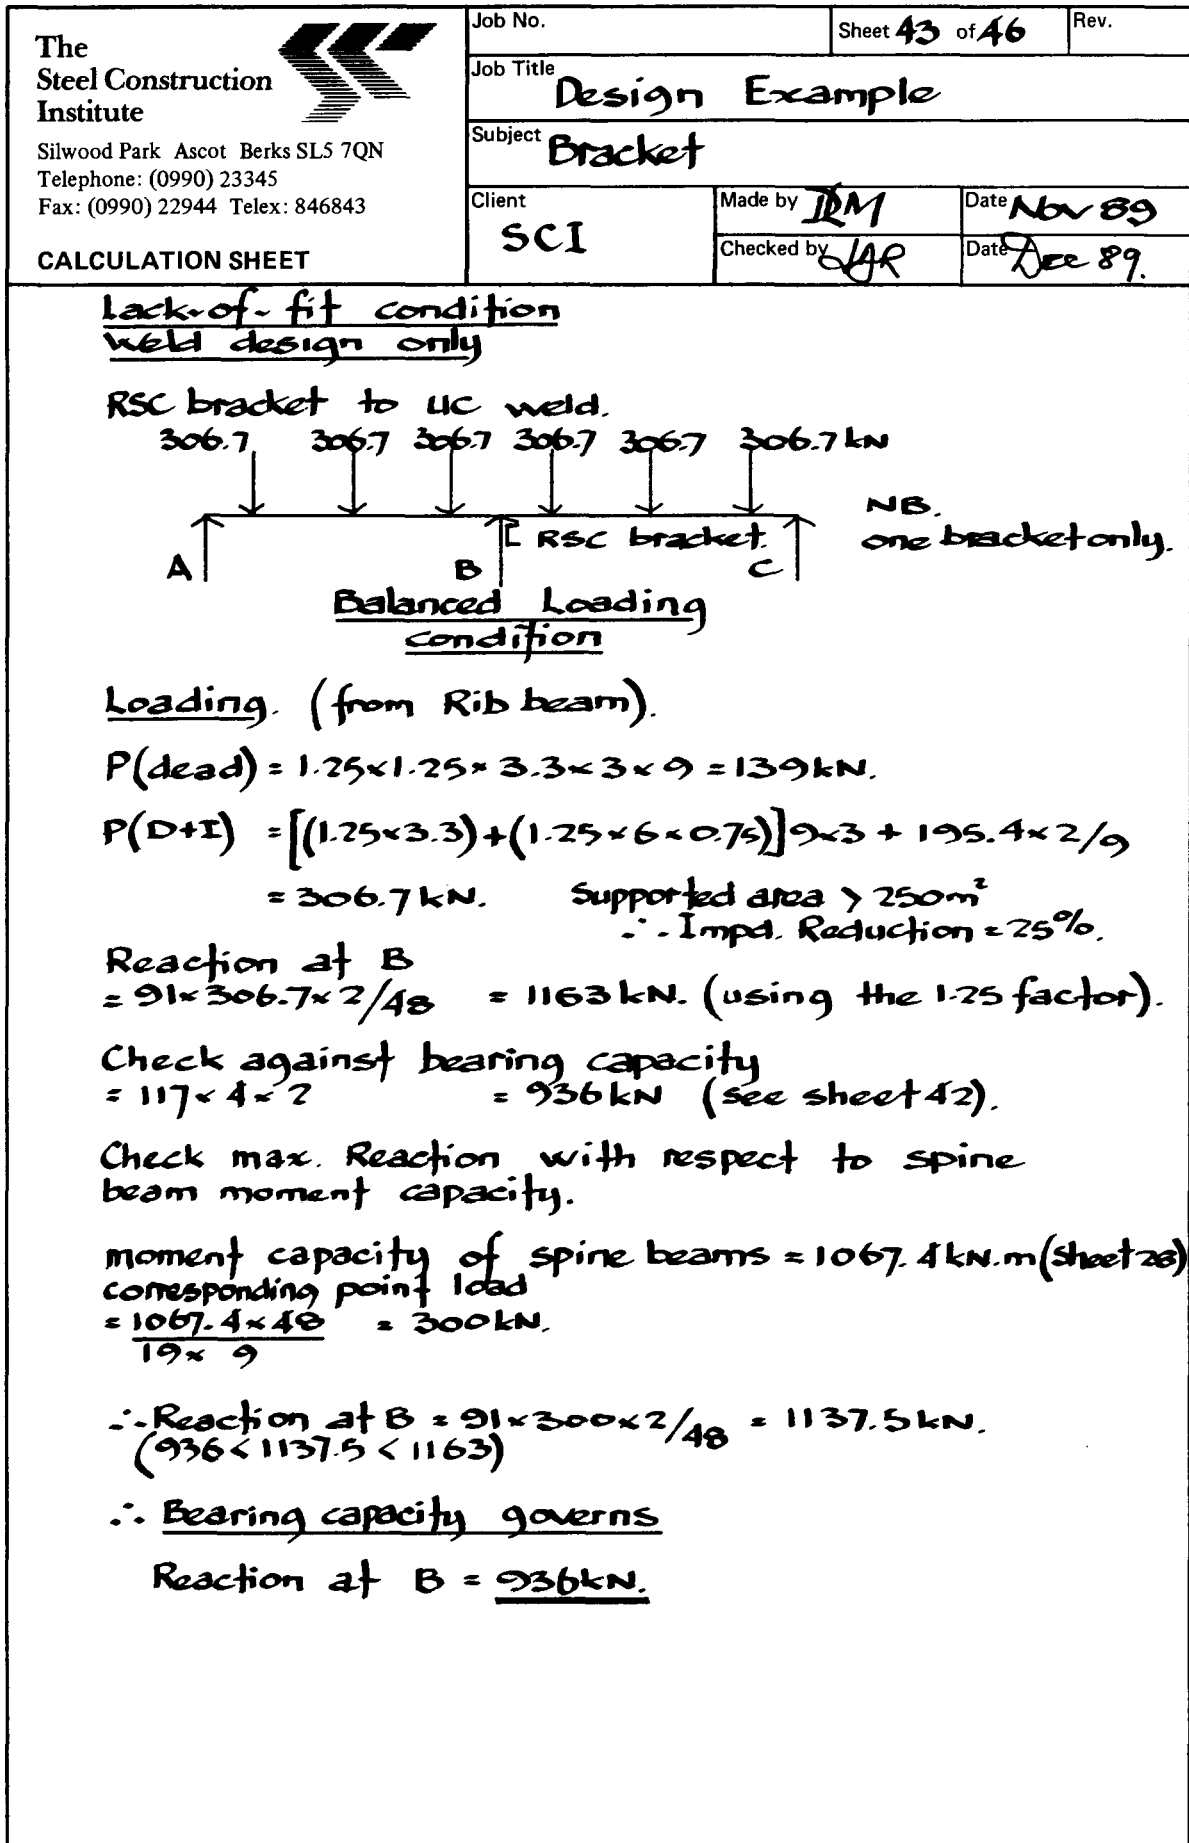 The
Steel Construction
Institute
Silwood Park Ascot Berks SL5 7QN
Telephone: (0990) 23345
Fax: (0990) 22944 Telex: 846843
CALCULATION SHEET
Job No.
Sheet 43 of 46
Rev.
Job Title
Design Example
Subject
Bracket
Client
SCI
Made by DRM
Date Nov 89
Checked by
Date Dec 89.
Lack-of-fit condition
weld design only
RSC bracket to UC weld.
306.7 306.7 306.7 306.7 306.7 306.7 kN
NB.
[ RSC bracket.
one bracket only.
A B C
Balanced Loading
condition
Loading. (from Rib beam).
P(dead) = 1.25×1.25× 3.3×3×9 = 139kN.
P(D+I) = [(1.25×3.3)+(1.25×6×0.75)]9×3 + 195.4×2/9
= 306.7 kN. Supported area > 250m²
∴ Impd. Reduction = 25%.
Reaction at B
= 91×306.7×2/48 = 1163 kN. (using the 1.25 factor).
Check against bearing capacity
= 117×4×2 = 936 kN (see sheet 42).
Check max. Reaction with respect to spine
beam moment capacity.
moment capacity of spine beams = 1067.4 kN.m (sheet 28)
corresponding point load
= 1067.4×48 = 300 kN.
19× 9
∴ Reaction at B = 91×300×2/48 = 1137.5 kN.
(936 < 1137.5 < 1163)
∴ Bearing capacity governs
Reaction at B = 936kN.